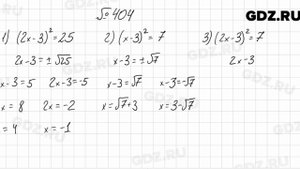 GDZ.RU
№ 404
1) (2x-3)² = 25 2) (x-3)² = 7 3) (2x-3)² = 7
2x-3 = ±√25 x-3 = ±√7 2x-3
x-3 = 5 2x-3 = -5 x-3 = √7 x-3 = -√7
x = 8 2x = -2 x = √7+3 x = 3-√7
= 4 x = -1